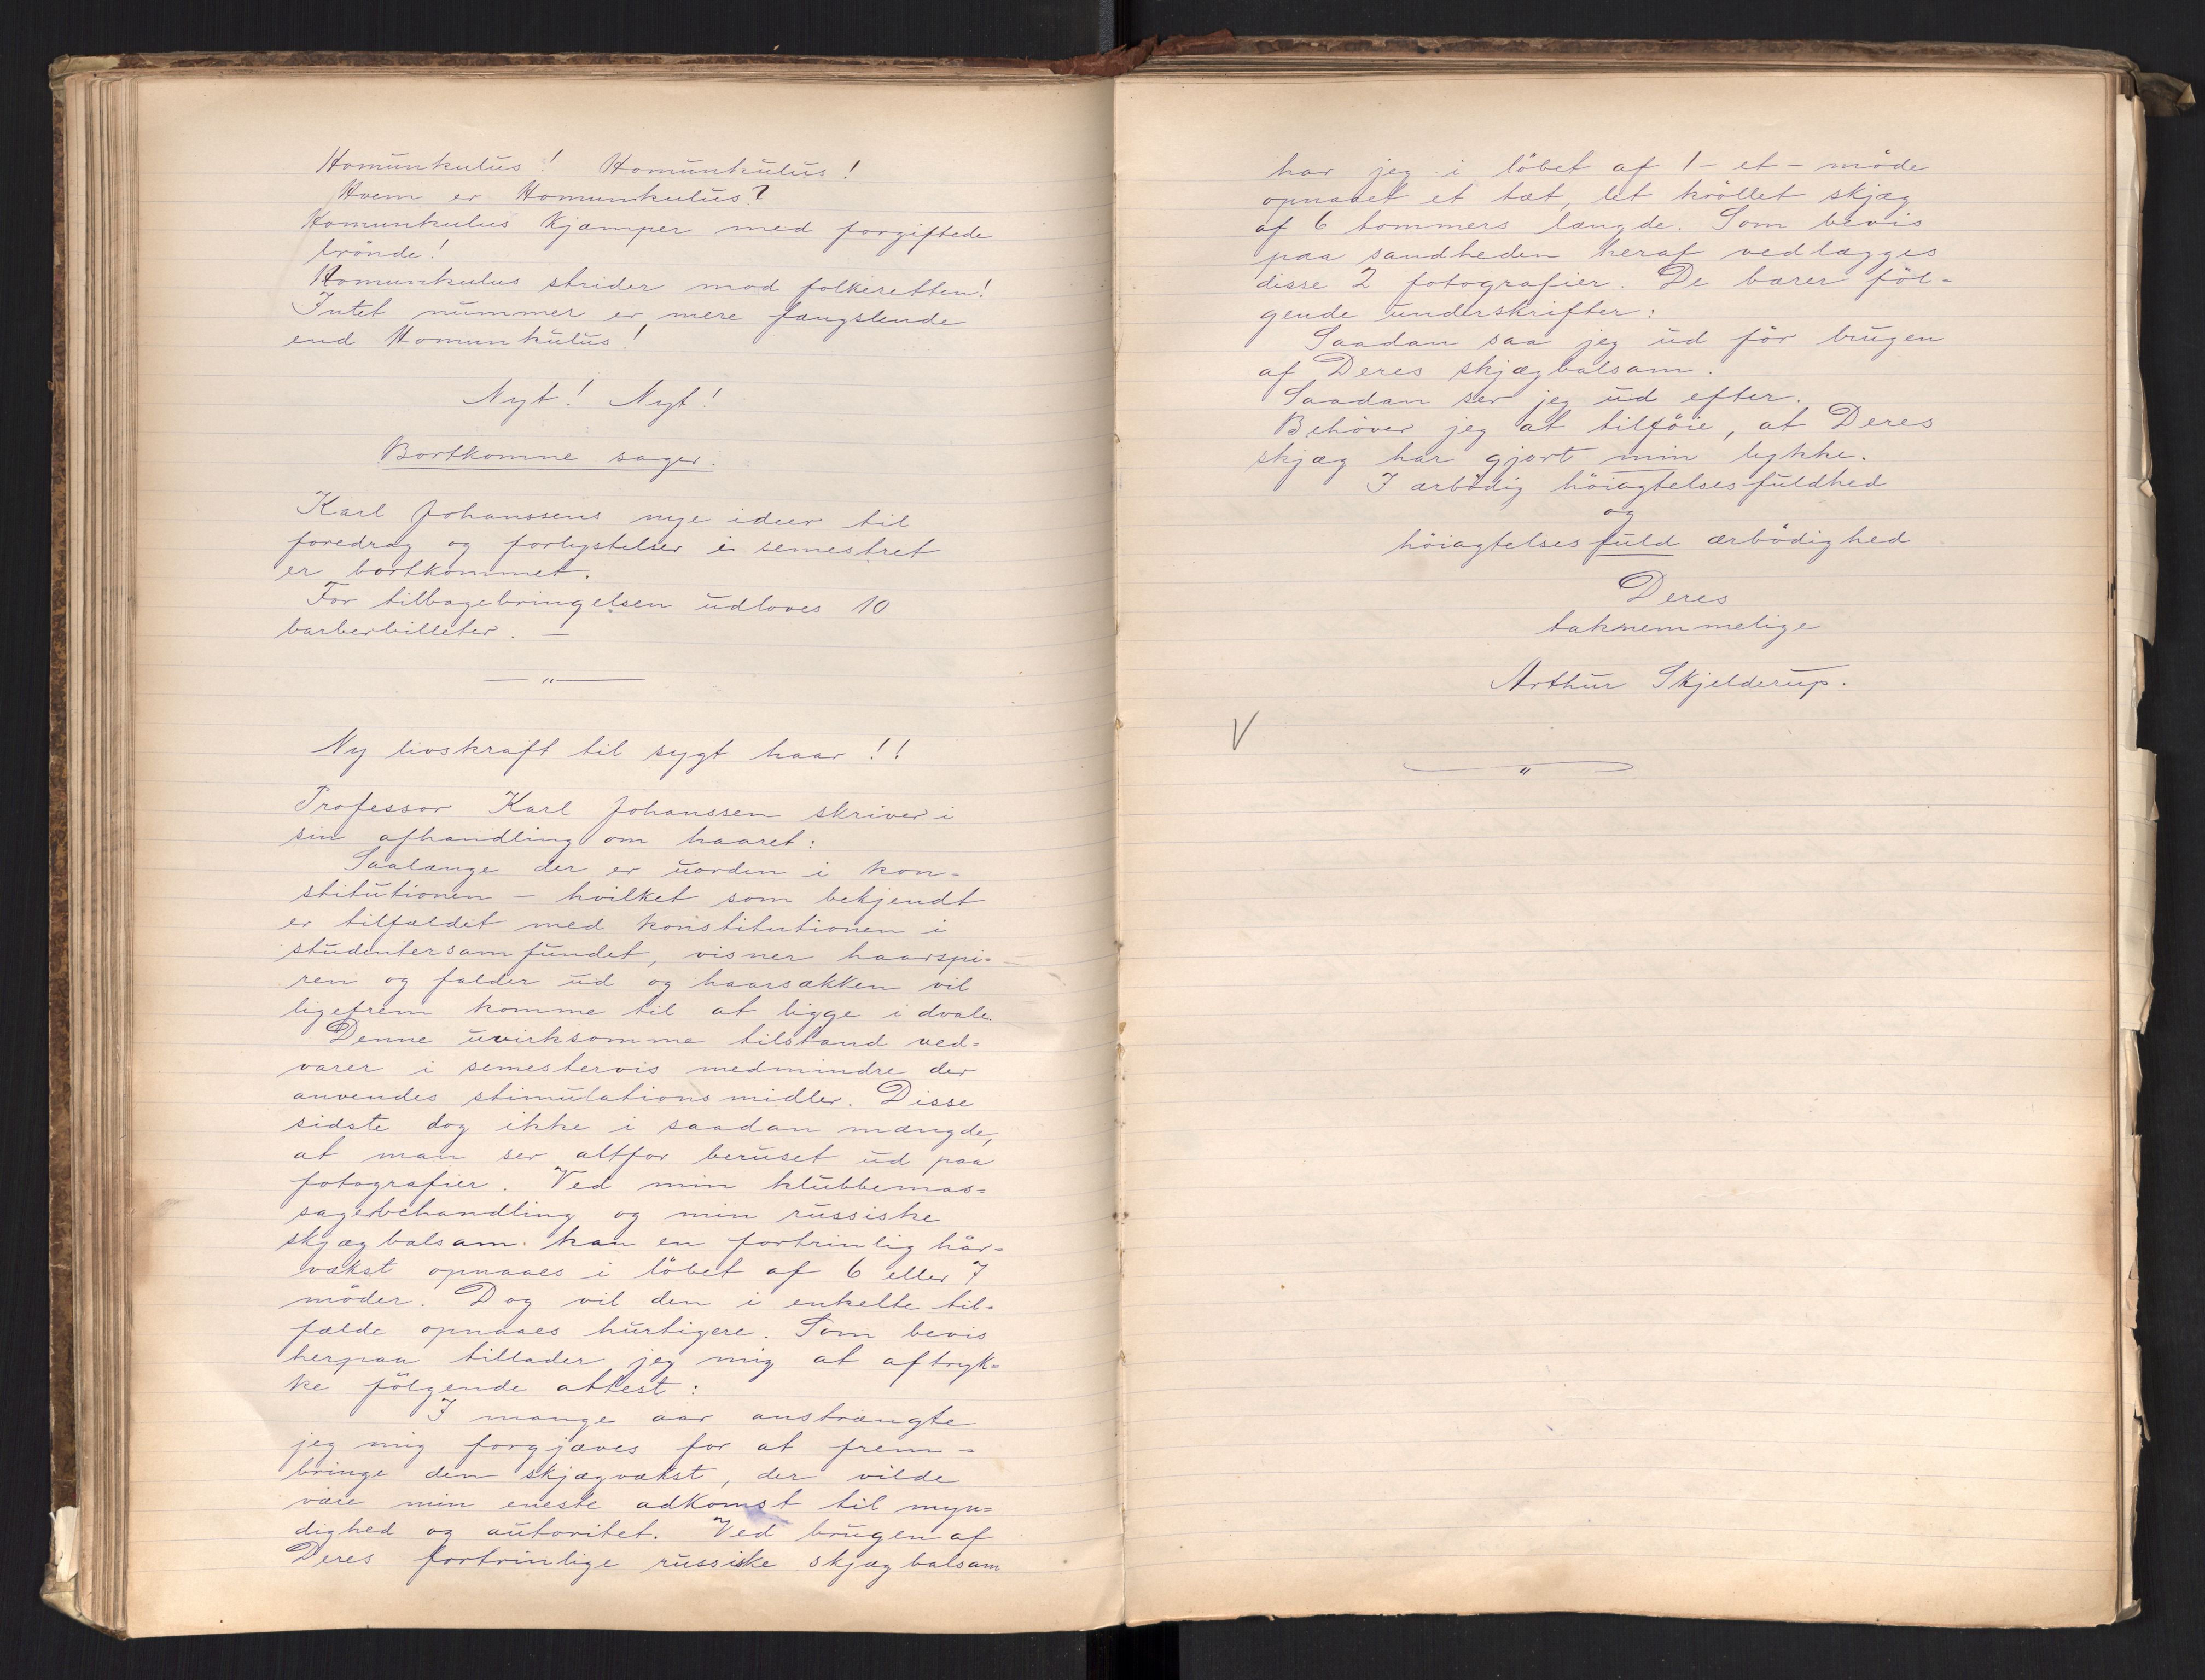 Homunkulus! Homunkulus!
Hvem er Homunkulus?
Homunkulus kjæmper med forgiftede
brønde!
Homunkulus strider mod folkeretten!
Intet nummer er mere fængslende
end Homunkulus!
Nyt! Nyt!
Bortkomne sager.
Karl Johanssens nye ideer til
foredrag og forlystelser i semestret
er bortkommet.
For tilbagebringelsen udloves 10
barberbilleter. —
— " —
Ny livskraft til sygt haar!!
Professor Karl Johanssen skriver i
sin afhandling om haaret:
Saalænge der er uorden i kon-
stitutionen — hvilket som bekjendt
er tilfældet med konstitutionen i
studentersamfundet, visner haarspi-
ren og falder ud og haarsækken vil
ligefrem komme til at ligge i dvale.
Denne uvirksomme tilstand ved=
varer i semestervis medmindre der
anvendes stimulationsmidler. Disse
sidste dog ikke i saadan mængde,
at man ser altfor beruset ud paa
fotografier. Ved min klubbemas=
sagebehandling og min russiske
skjægbalsam kan en fortrinlig hår=
vækst opnaaes i löbet af 6 eller 7
möder. Dog vil den i enkelte til-
fælde opnaaes hurtigere. Som bevis
herpaa tillader jeg mig at aftryk=
ke fölgende attest:
I mange aar anstrængte
jeg mig forgjæves for at frem=
bringe den skjægvækst, der vilde
være min eneste adkomst til myn=
dighed og autoritet. Ved brugen af
Deres fortrinlige russiske skjægbalsam
har jeg i löbet af 1 - et - möde
opnaaet et tæt, let kröllet skjæg
af 6 tommers længde. Som bevis
paa sandheden heraf vedlægges
disse 2 fotografier. De bærer föl-
gende underskrifter:
Saadan saa jeg ud för brugen
af Deres skjægbalsam.
Saadan ser jeg ud efter.
Behöver jeg at tilföie, at Deres
skjæg har gjort min lykke.
I ærbödig höiagtelsesfuldhed
og
höiagtelsesfuld ærbödighed
Deres
taknemmelige
Arthur Skjelderup.
V
— " —